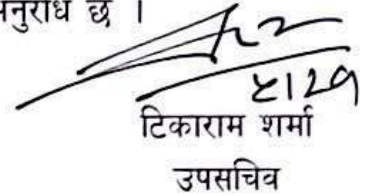 अनुरोध छ ।
५।२१
टिकाराम शर्मा
उपसचिव